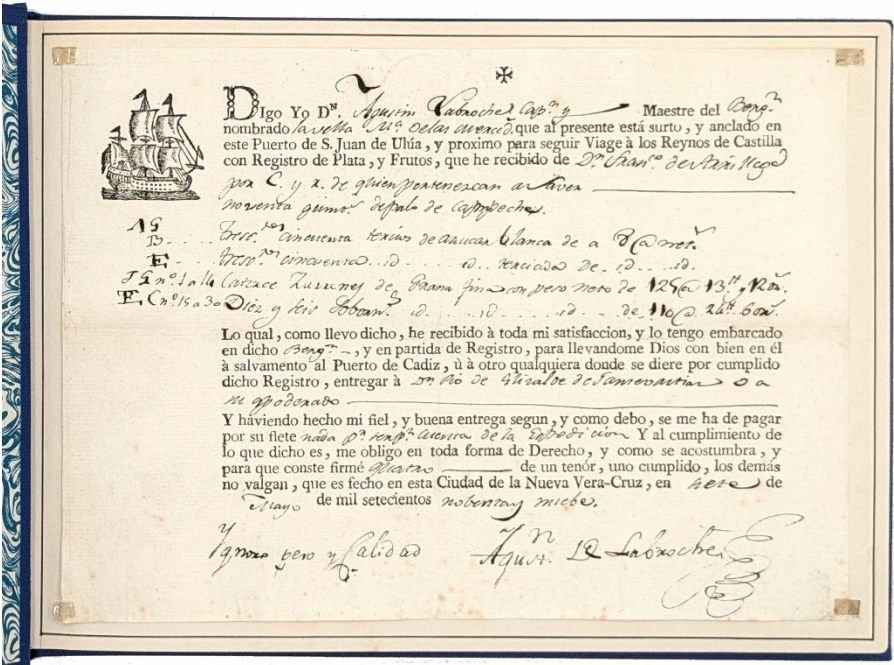 ✠
DIgo Yo Dⁿ. Agustin Labrochè Capⁿ y Maestre del Bergⁿ.
nombrado la vella Mᵃ. de las Merced. que al presente está surto, y anclado en
este Puerto de S. Juan de Uhía, y proximo para seguir Viage à los Reynos de Castilla
con Registro de Plata, y Frutos, que he recibido de Dⁿ. Franᶜᵒ de
por C. y r. de quien pertenezcan a aver
noventa quintˢ. de palo de Campeche.
cincuenta tercios de azucar blanca de a
cincuenta .. id ... id. terciada de .. id .. id.
nº. 1 a 14 Catorce Zurrones de Grana fina con peso neto de 125@ 13
nº. 15 a 30 Diez y seis id... id... id... de 110@ 24
Lo qual, como llevo dicho, he recibido à toda mi satisfaccion, y lo tengo embarcado
en dicho Bergⁿ, y en partida de Registro, para llevandome Dios con bien en él
à salvamento al Puerto de Cadiz, ù à otro qualquiera donde se diere por cumplido
dicho Registro, entregar à Dⁿ. Pio de Elizalde o a
su apoderado
Y háviendo hecho mi fiel, y buena entrega segun, y como debo, se me ha de pagar
por su flete nada pʳ cuenta de la Expedicion Y al cumplimiento de
lo que dicho es, me obligo en toda forma de Derecho, y como se acostumbra, y
para que conste firmé quatro de un tenór, uno cumplido, los demás
no valgan, que es fecho en esta Ciudad de la Nueva Vera-Cruz, en siete de
Mayo de mil setecientos nobenta y nuebe.
Ygnoro peso y Calidad
Agusⁿ. Labroche